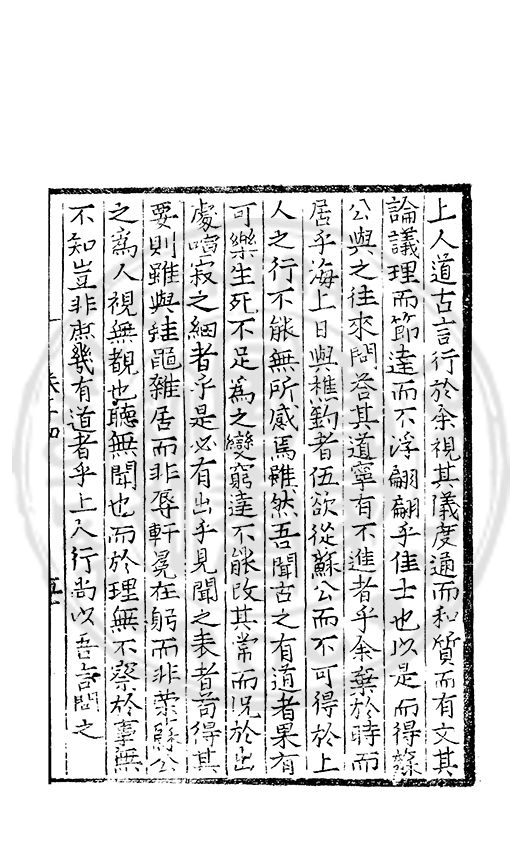 上人道古言行於余視其儀度通而和質而有文其
論議理而節達而不浮翩翩乎佳士也以是而得蘇
公與之往來問答其道寧有不進者乎余棄於時而
居乎海上日與樵釣者伍欲從蘇公而不可得於上
人之行不能無所感焉雖然吾聞古之有道者果有
可樂生死不足為之變窮達不能改其常而况於出
處喧寂之細者乎是必有出乎見聞之表者苟得其
要則雖與蛙黽雜居而非辱軒冕在躬而非榮蘇公
之為人視無覩也聽無聞也而於理無不察於事無
不知豈非庶幾有道者乎上人行尚以吾言問之
卷十四